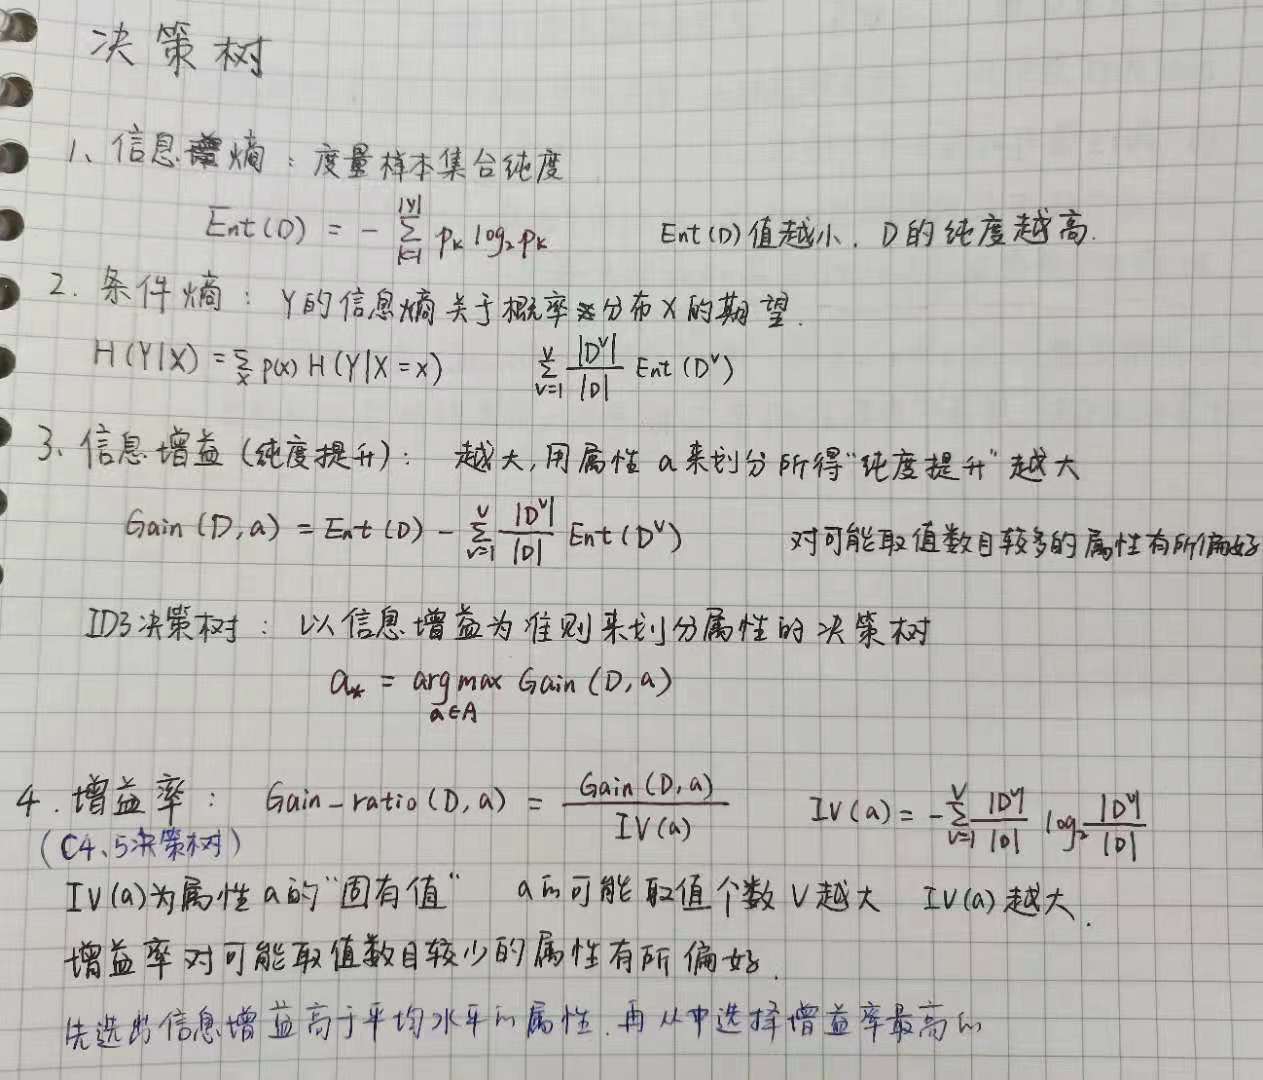 决策树
1、信息熵：度量样本集合纯度
Ent(D) = - ∑_{k=1}^{|y|} p_k log₂ p_k    Ent(D)值越小，D的纯度越高.
2. 条件熵：Y的信息熵关于概率分布X的期望.
H(Y|X) = ∑_x p(x) H(Y|X=x)    ∑_{v=1}^{V} |D^v|/|D| Ent(D^v)
3、信息增益(纯度提升)：越大,用属性a来划分所得"纯度提升"越大
Gain(D,a) = Ent(D) - ∑_{v=1}^{V} |D^v|/|D| Ent(D^v)    对可能取值数目较多的属性有所偏好
ID3决策树：以信息增益为准则来划分属性的决策树
a_* = argmax_{a∈A} Gain(D,a)
4. 增益率：Gain-ratio(D,a) = Gain(D,a)/IV(a)    IV(a) = -∑_{v=1}^{V} |D^v|/|D| log₂ |D^v|/|D|
(C4、5决策树)
IV(a)为属性a的"固有值"  a的可能取值个数V越大  IV(a)越大.
增益率对可能取值数目较少的属性有所偏好.
先选出信息增益高于平均水平的属性.再从中选择增益率最高的